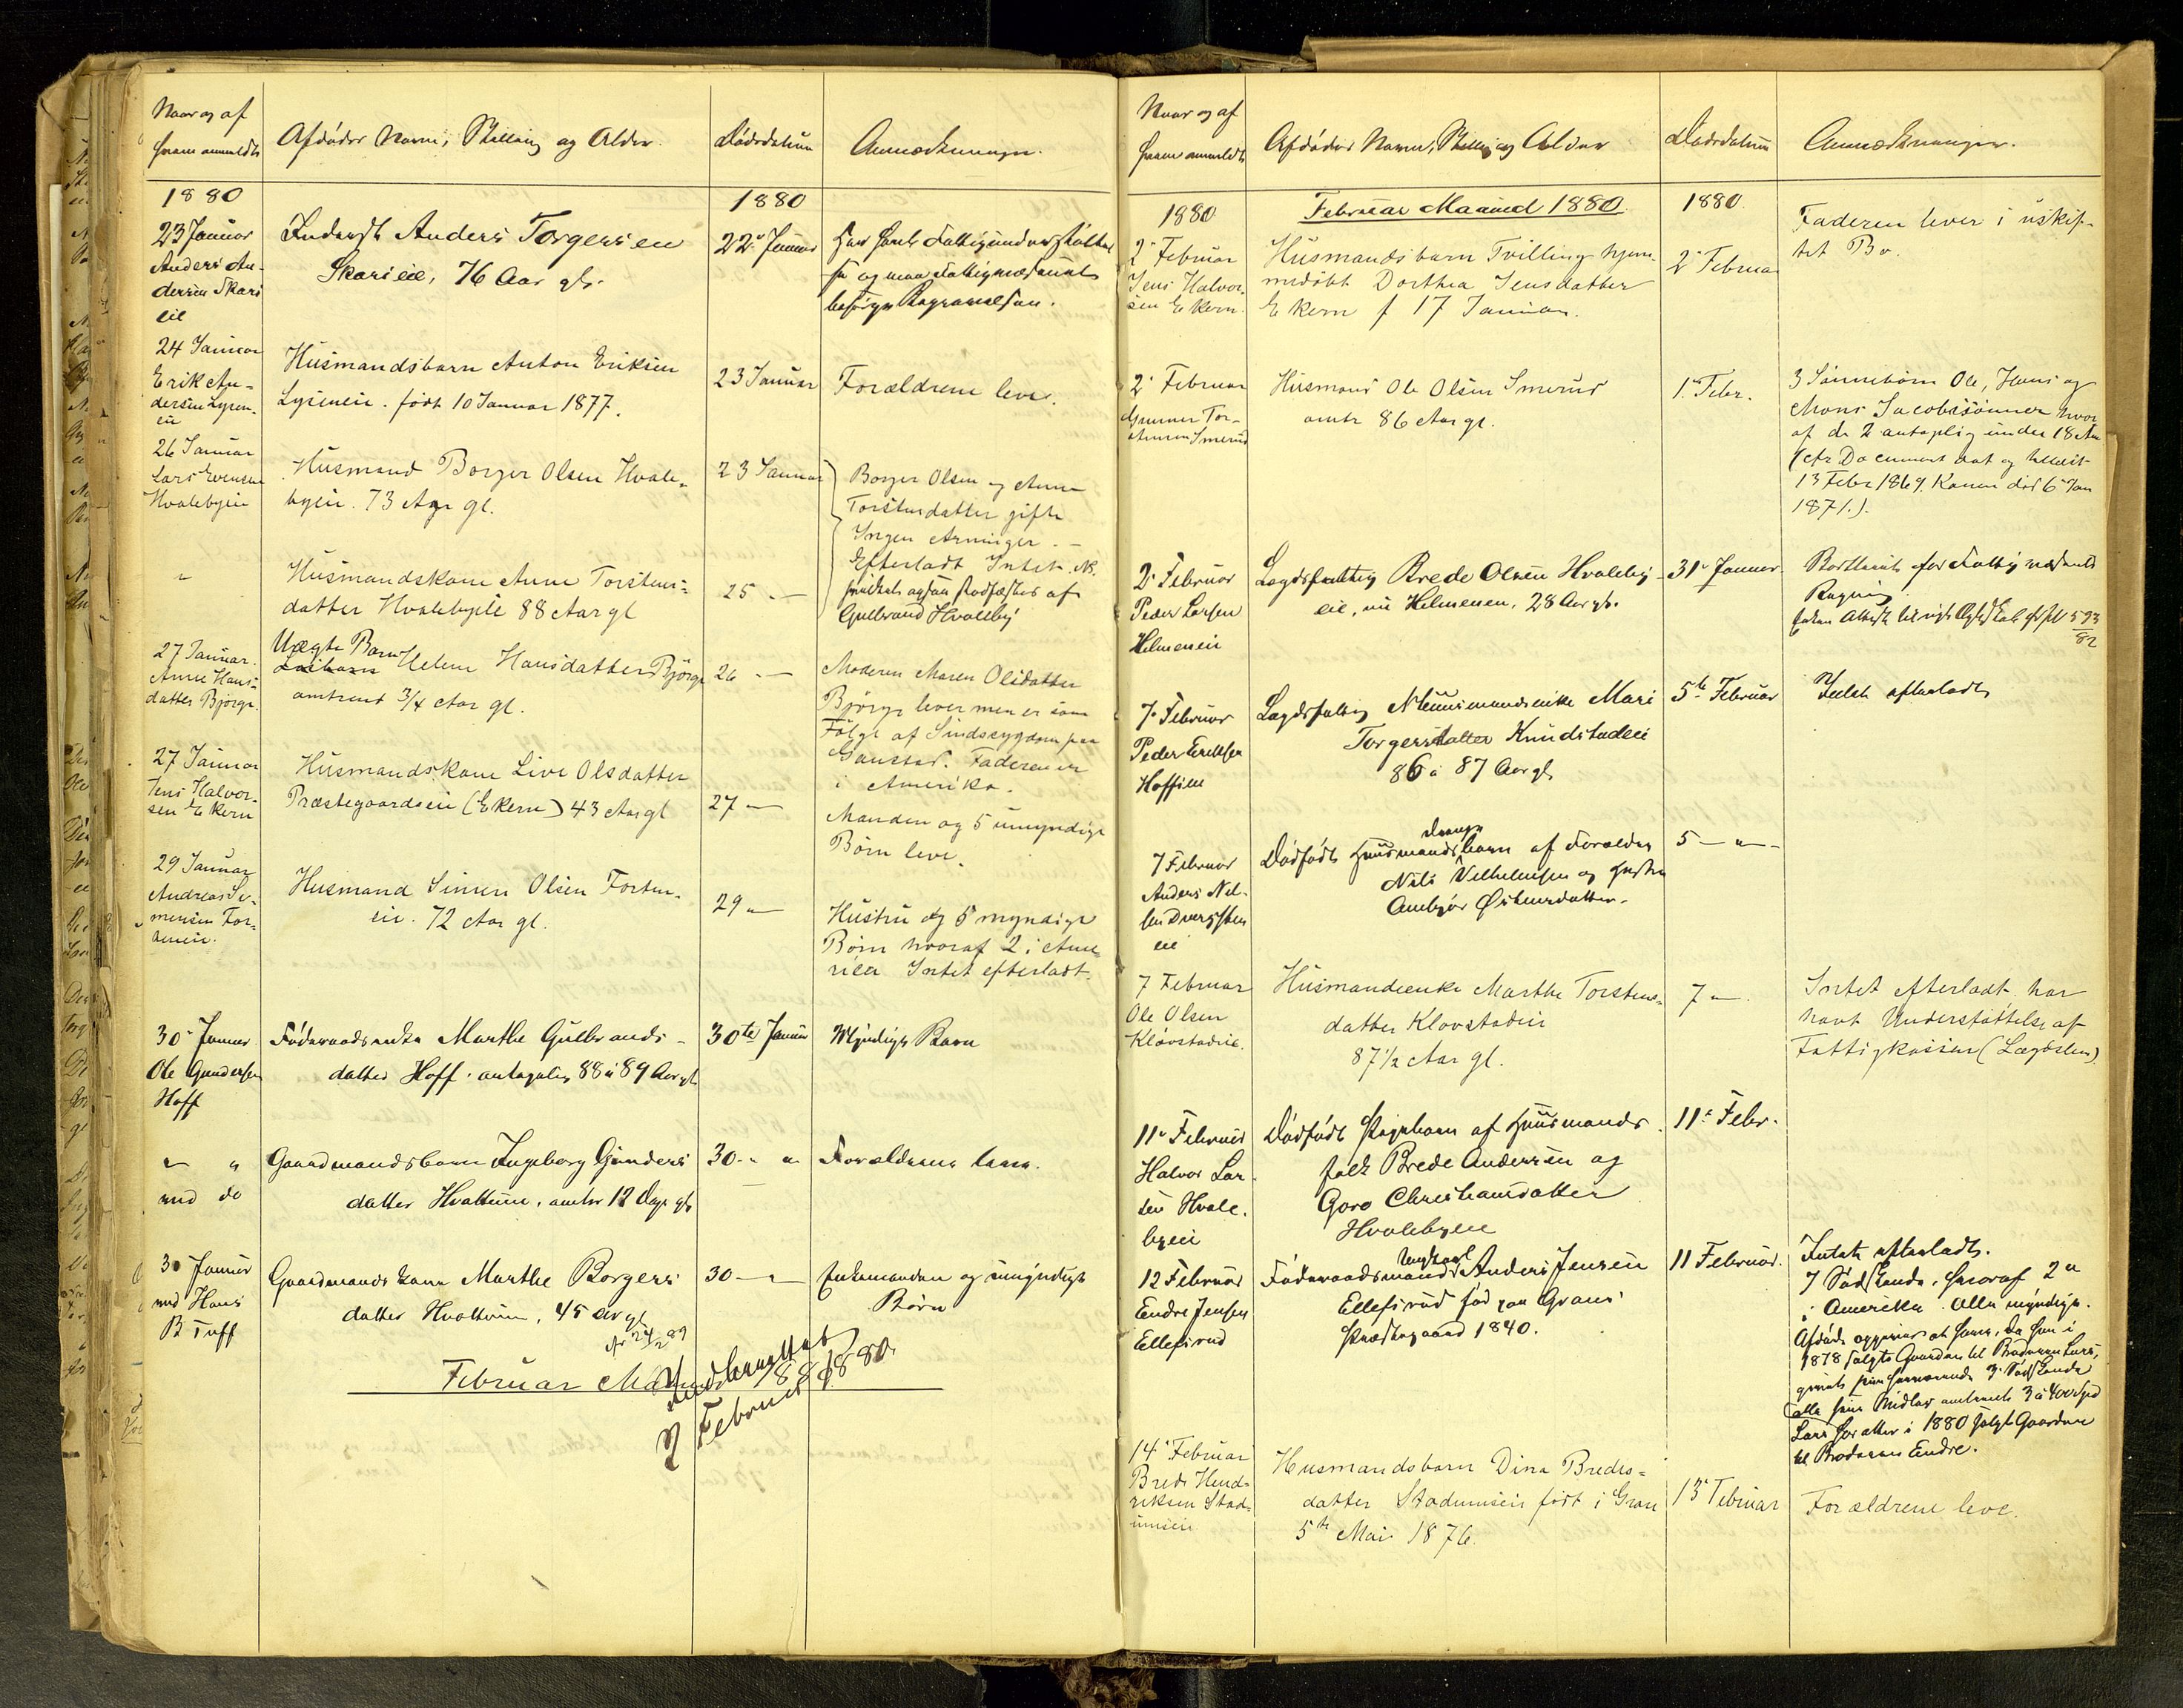 Naar og af
hvem anmeldt
Afdødes Navn, Stilling og Alder.
Dødsdatum
Anmærkninger.
1880
1880
23 Januar
Anders An-
dersen Skari
eie
Inderst Anders Torgersen
Skarieie, 76 Aar gl.
22de Januar
Har havt Fattigunderstøttel
se og maa Fattigvæsenet
besørge Begravelsen.
24 Januar
Erik An-
dersen Lysen-
eie
Husmandsbarn Anton Eriksen
Lyseneie. født 10 Januar 1877.
23 Januar
Forældrene leve.
26 Januar
Lars Evensen
Hvalebyeie
Husmand Borger Olsen Hvale-
byeie. 73 Aar gl.
23 Januar
Borger Olsen og Anne
Torstensdatter gifte
Ingen Arvinger. -
Efterladt Intet.
Gulbrand Hvaleby
"
Husmandskone Anne Torstens-
datter Hvalebyeie 88 Aar gl
25 "
27 Januar.
Anne Hans-
datter Bjørge.
Uægte Barn
Helene Hansdatter Bjørge
omtrent 3/4 Aar gl.
26 "
Moderen Maren Olsdatter
Bjørge lever men er som
Følge af Sindssygdom paa
Gaustad. Faderen er
i Amerika.
27 Januar
Jens Halvor-
sen Ekern
Husmandskone Live Olsdatter
Præstegaardseie (Ekern) 43 Aar gl
27 "
Manden og 5 umyndige
Børn leve.
29 Januar
Andreas Si-
mensen For-
teneie.
Husmand Simen Olsen Forten-
eie. 72 Aar gl.
29 "
Hustru og 5 myndige
Børn hvoraf 2 i Ame
rica Intet efterladt.
30 Januar
Ole Gundersen
Hoff
Føderaadsenke Marthe Gulbrands-
datter Hoff. antagelig 88 à 89 Aar gl
30te Januar
Myndige Børn
" "
ved do
Gaardmandsbarn Ingeborg Gunders
datter Hvattum, omtr 12 Dage gl
30 " "
Forældrene leve.
30 Januar
ved Hans
B Tuff
Gaardmandskone Marthe Borgers
datter Hvattum, 45 Aar gl
30 — "
Enkemanden og umyndige
Børn
Februar
7 Februar 1880.
Naar og af
hvem anmeldt
Afdødes Navn, Stilling og Alder
Dødsdatum
Anmærkninger.
1880
Februar Maaned 1880
1880.
2 Februar
Jens Halvor-
sen Ekern.
Husmandsbarn Tvilling hjem-
medøbt Dorthea Jensdatter
Ekern f 17 Januar.
2 Februar
Faderen lever i uskif-
tet Bo.
2 Februar
Gunner Tor-
Smerud
Husmand Ole Olsen Smerud
omtr 86 Aar gl.
1. Febr.
3 Sønnebørn Ole, Hans og
Mons Jacobssønner hvor
af de 2 antagelig under 18 Aar
(cfr Document
13 Febr 1869. Konen død 6 Jan
1871.).
2 Februar
Peder Larsen
Helmeneie
Lægdsfattig Brede Olsen Hvaleby-
eie, nu Helmenen, 28 Aar gl.
31 Januar
Bortsat for Fattigvæsenets
Regning
593
82
7 Februar
Peder Eriksen
Hoffseie
Lægdsfattig Huusmandsenke Mari
Torgersdatter Knudstadeie
86 à 87 Aar gl.
5te Februar
Intet efterladt
7 Februar
Anders Nil-
sen Dvergsten
eie
Dødfødt Huusmands drenge barn af Forældre
Nils Vilhelmsen og Hustru
Ambjør Østensdatter.
5 — " —
7 Februar
Ole Olsen
Kløvstadeie.
Husmandsenke Marthe Torstens-
datter Kløvstadeie
87 1/2 Aar gl.
7 "
Intet efterladt har
havt Understøttelse af
Fattigkassen (Lægdslem)
11 Februar
Halvor Lar-
sen Hvale-
byeie
Dødfødt Pigebarn af Huusmands-
folk Brede Andersen og
Goro Christiansdatter
Hvalebyeie
11 Febr.
12 Februar
Endre Jensen
Ellefsrud
Føderaadsmand Ungkarl Anders Jensen
Ellefsrud fød paa Grans
Præstegaard 1840.
11 Februar.
Intet efterladt.
7 Sødskende, hvoraf 2
i Amerika. Alle myndige.
Afdøde opgives at have, da han i
1878 solgte Gaarden til Broderen Lars,
givet sine hjemværende 3 Sødskende
alle sine Midler omtrent 3 à 400 Spd
Lars har atter i 1880 solgt Gaarden
til Broderen Endre.
14 Februar
Brede Hend-
riksen Stad-
umseie
Husmandsbarn Dina Bredes-
datter Stadumseie født i Gran
5te Mai 1876.
13 Februar
Forældrene leve.